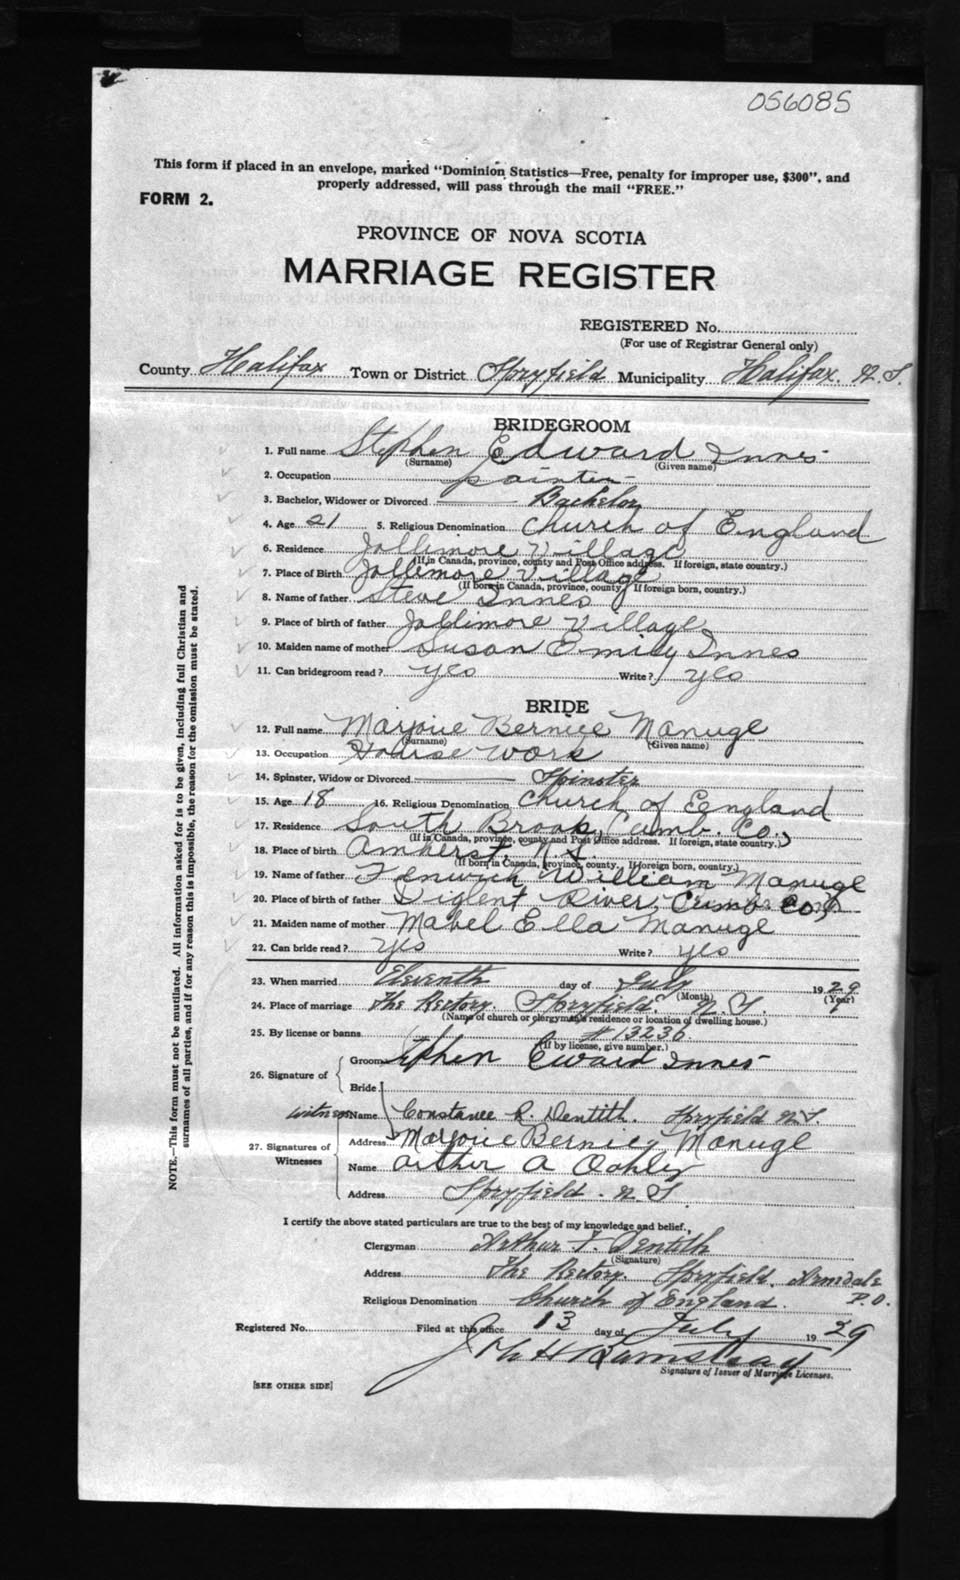 056085
This form if placed in an envelope, marked "Dominion Statistics—Free, penalty for improper use, $300", and
properly addressed, will pass through the mail "FREE."
FORM 2.
PROVINCE OF NOVA SCOTIA
MARRIAGE REGISTER
REGISTERED No.
(For use of Registrar General only)
County Halifax Town or District Spryfield Municipality Halifax. N.S.
BRIDEGROOM
1. Full name Stephen Edward Innes
(Surname) (Given name)
2. Occupation painter
3. Bachelor, Widower or Divorced Bachelor
4. Age 21 5. Religious Denomination Church of England
6. Residence Jollimore Village
(If in Canada, province, county and Post Office address. If foreign, state country.)
7. Place of Birth Jollimore Village
(If born in Canada, province, county. If foreign born, country.)
8. Name of father Steve Innes
9. Place of birth of father Jollimore Village
10. Maiden name of mother Susan Emily Innes
11. Can bridegroom read? yes Write? yes
BRIDE
12. Full name Marjorie Bernice Manugl
(Surname) (Given name)
13. Occupation House Work
14. Spinster, Widow or Divorced Spinster
15. Age 18 16. Religious Denomination Church of England
17. Residence South Brook, Cumb. Co.,
(If in Canada, province, county and Post Office address. If foreign, state country.)
18. Place of birth Amherst, N.S.
(If born in Canada, province, county. If foreign born, country.)
19. Name of father Fenwick William Manugl
20. Place of birth of father Diglent River, Cumb Co,
21. Maiden name of mother Mabel Ella Manugl
22. Can bride read? yes Write? yes
23. When married Eleventh day of July 1929
(Month) (Year)
24. Place of marriage The Rectory. Spryfield. N.S.
(Name of church or clergyman's residence or location of dwelling house.)
25. By license or banns # 13236.
(If by license, give number.)
26. Signature of Groom ephen Eward Innes
Bride
witness Name Constance R. Dentith. Spryfield N.S.
27. Signatures of Witnesses
Address Marjorie Bernicy Manugl
Name Arther A Oakley
Address Spryfield. N.S.
I certify the above stated particulars are true to the best of my knowledge and belief.
Clergyman Arthur F. Dentith
(Signature)
Address The Rectory. Spryfield. Armdale
Religious Denomination Church of England. P.O.
Registered No. Filed at this office 13 day of July 1929
Signature of Issuer of Marriage Licenses.
[SEE OTHER SIDE]
NOTE.—This form must not be mutilated. All information asked for is to be given, including full Christian and
surnames of all parties, and if for any reason this is impossible, the reason for the omission must be stated.